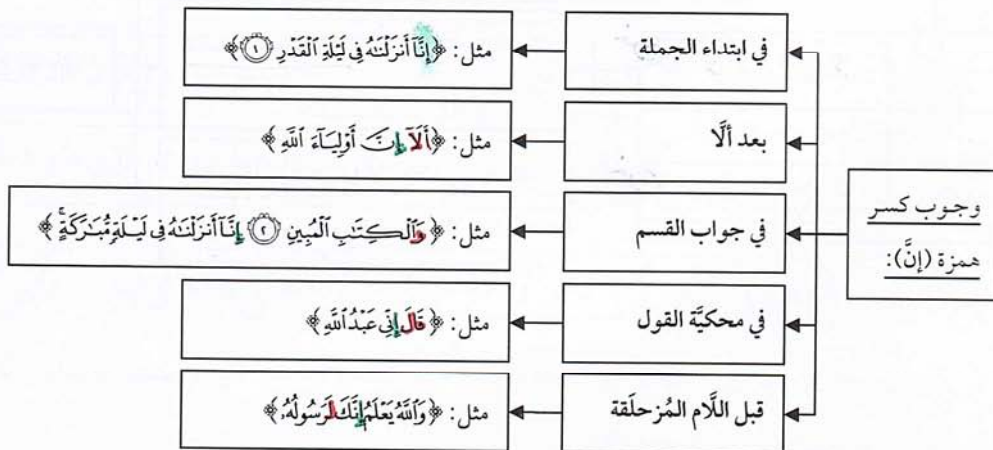 وجوب كسر
همزة (إنَّ):
في ابتداء الجملة
مثل: ﴿إِنَّآ أَنزَلْنَٰهُ فِى لَيْلَةِ ٱلْقَدْرِ ١﴾
بعد ألَّا
مثل: ﴿أَلَآ إِنَّ أَوْلِيَآءَ ٱللَّهِ﴾
في جواب القسم
مثل: ﴿وَٱلْكِتَٰبِ ٱلْمُبِينِ ٢ إِنَّآ أَنزَلْنَٰهُ فِى لَيْلَةٍ مُّبَٰرَكَةٍ ۚ﴾
في محكيَّة القول
مثل: ﴿قَالَ إِنِّى عَبْدُ ٱللَّهِ﴾
قبل اللَّام المُزحلَقة
مثل: ﴿وَٱللَّهُ يَعْلَمُ إِنَّكَ لَرَسُولُهُۥ﴾